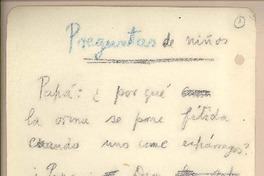 1
Preguntas de niños
Papá: ¿ por qué
la orina se pone fétida
cuando uno come espárragos?